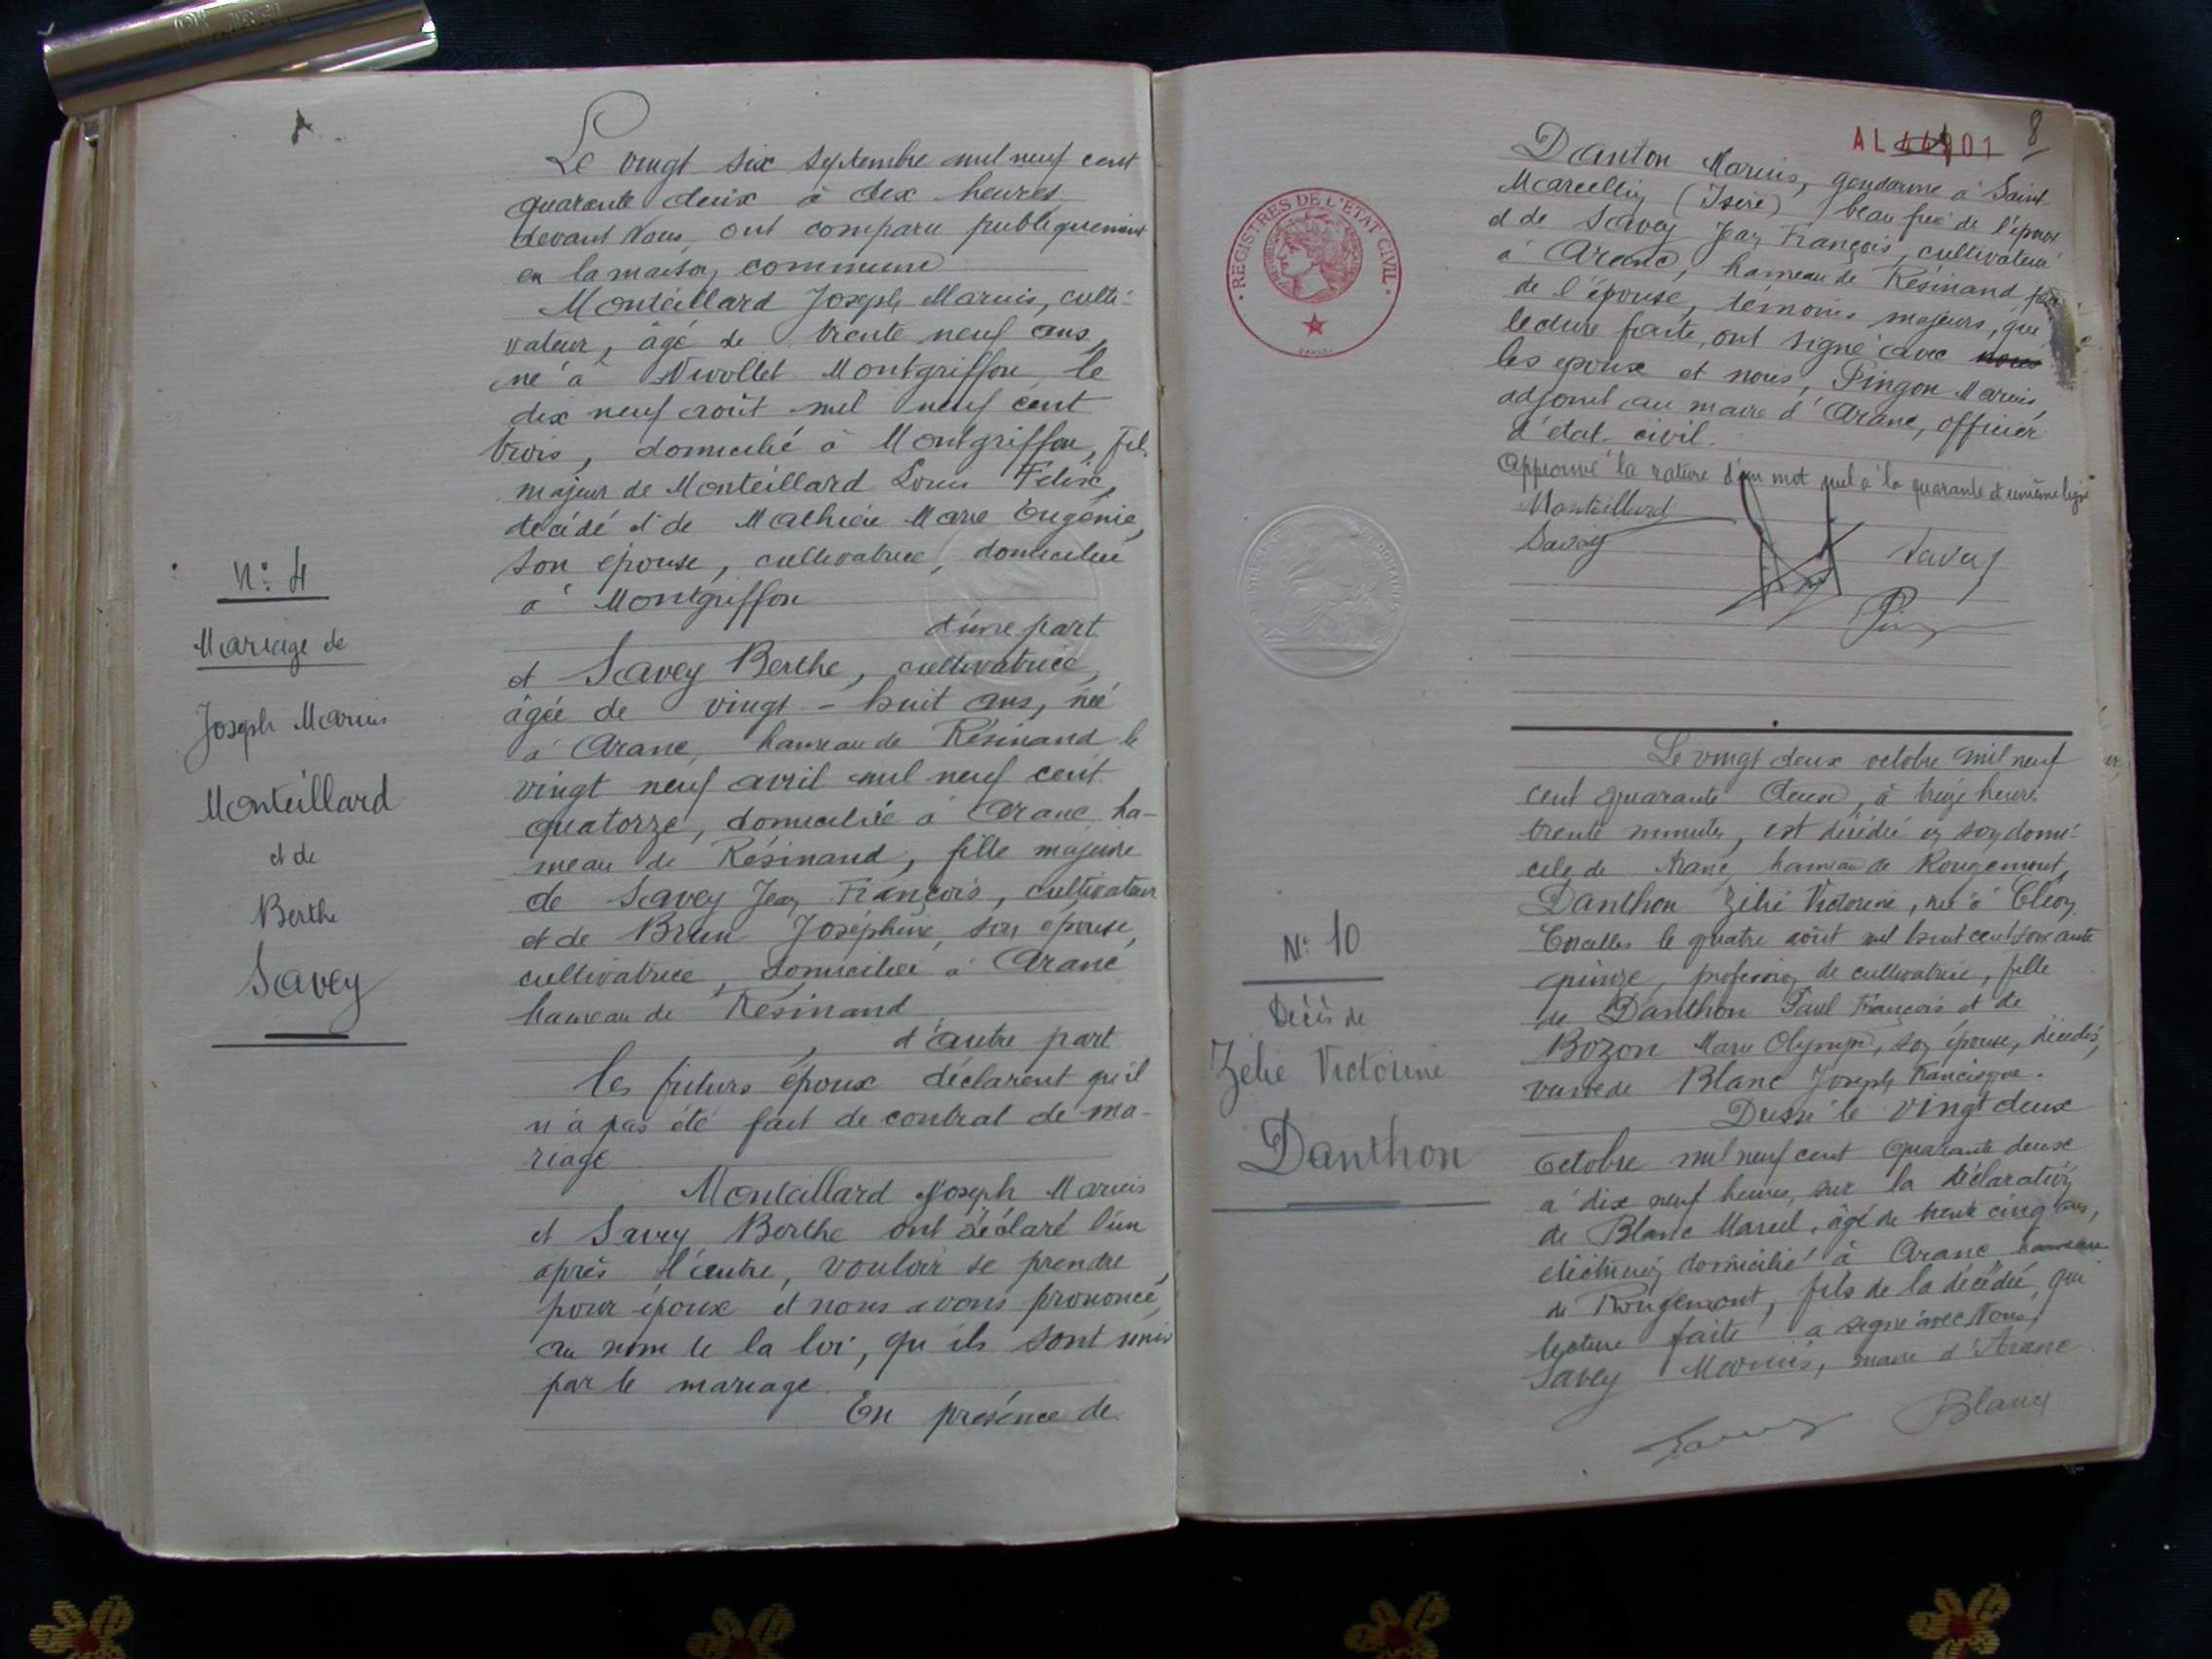 N° 4
Mariage de
Joseph Marius
Monteillard
et de
Berthe
Savey
Le vingt six Septembre mil neuf cent
quarante deux à dix heures
devant Nous, ont comparu publiquement
en la maison commune
Monteillard Joseph Marius, culti-
vateur, âgé de trente neuf ans,
né à Nivollet Montgriffon le
dix neuf août mil neuf cent
trois, domicilié à Montgriffon, fils
majeur de Monteillard Louis Félix,
décédé et de Mathieu Marie Eugénie,
son épouse, cultivatrice, domiciliée
à Montgriffon
d'une part
et Savey Berthe, cultivatrice,
âgée de vingt-huit ans, née
à Aranc, hameau de Résinand le
vingt neuf avril mil neuf cent
quatorze, domiciliée à Aranc ha-
meau de Résinand, fille majeure
de Savey Jean François, cultivateur
et de Brun Joséphine, son épouse,
cultivatrice, domiciliée à Aranc
hameau de Résinand
d'autre part
Les futurs époux déclarent qu'il
n'a pas été fait de contrat de ma-
riage
Monteillard Joseph Marius
et Savey Berthe ont déclaré l'un
après l'autre, vouloir se prendre
pour époux et nous avons prononcé,
au nom de la loi, qu'ils sont unis
par le mariage.
En présence de
AL 01
8
REGISTRES DE L'ÉTAT CIVIL
Danton Marius, gendarme à Saint
Marcellin (Isère) beau frère de l'épouse
et de Savey Jean François, cultivateur
à Aranc, hameau de Résinand, père
de l'épouse, témoins majeurs, qui
lecture faite, ont signé avec nous
les époux et nous, Pingon Marius,
adjoint au maire d'Aranc, officier
d'état-civil.
Approuvé la rature d'un mot nul à la quarante et unième ligne
Monteillard
Savey
Savey
N° 10
Décès de
Zélie Victorine
Danthon
Le vingt deux octobre mil neuf
cent quarante deux, à treize heures
trente minutes, est décédée en son domi-
cile de Aranc, hameau de Rougemont,
Danthon Zélie Victorine, née à Cléon
Corcelles le quatre août mil huit cent soixante
quinze, profession de cultivatrice, fille
de Danthon Paul François et de
Bozon Marie Olympe, son épouse, décédés,
veuve de Blanc Joseph Francisque.
Dressé le vingt deux
Octobre mil neuf cent quarante deux
à dix neuf heures, sur la déclaration
de Blanc Marcel, âgé de trente cinq ans,
électricien domicilié à Aranc hameau
de Rougemont, fils de la décédée, qui
lecture faite a signé avec Nous,
Savey Marius, maire d'Aranc.
Savey
Blanc